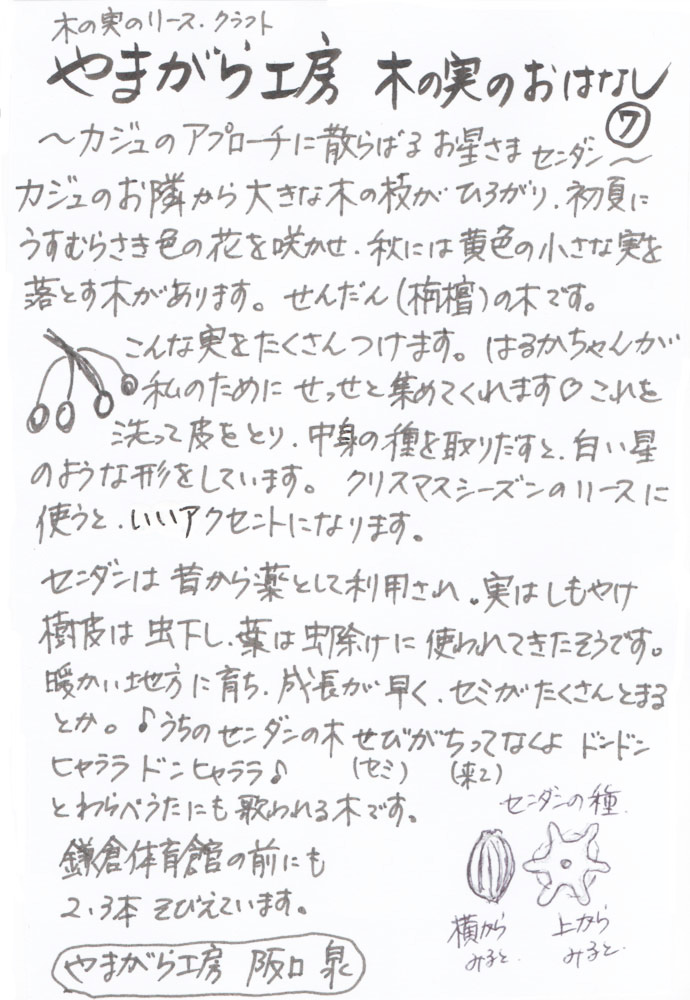 木の実のリース・クラフト
やまがら工房 木の実のおはなし
⑦
～カジュのアプローチに散らばるお星さま センダン～
カジュのお隣から大きな木の枝がひろがり、初夏に
うすむらさき色の花を咲かせ、秋には黄色の小さな実を
落とす木があります。せんだん(栴檀)の木です。
こんな実をたくさんつけます。はるかちゃんが
私のために せっせと集めてくれます♡これを
洗って皮をとり、中身の種を取りだすと、白い星
のような形をしています。クリスマスシーズンのリースに
使うと、いいアクセントになります。
センダンは昔から薬として利用され、実はしもやけ
樹皮は虫下し、葉は虫除けに使われてきたそうです。
暖かい地方に育ち、成長が早く、セミがたくさんとまる
とか。♪うちのセンダンの木 せびがちってなくよ ドンドン
ヒャララ ドンヒャララ♪ (セミ) (来て)
とわらべうたにも歌われる木です。
鎌倉体育館の前にも
2、3本 そびえています。
やまがら工房 阪口 泉
センダンの種
横から
みると
上から
みると